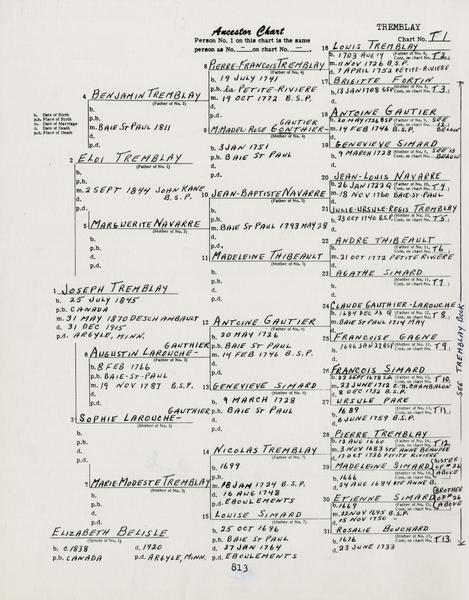 Ancestor Chart
TREMBLAY
Person No. 1 on this chart is the same
person as No. — on chart No. —.
Chart No. T1
b. Date of Birth
p.b. Place of Birth
m. Date of Marriage
d. Date of Death
p.d. Place of Death
1 JOSEPH TREMBLAY
b. 25 JULY 1845
p.b. CANADA
m. 31 MAY 1870 DESCHAMBAULT
d. 31 DEC 1915
p.d. ARGYLE, MINN.
ELIZABETH BELISLE
(Spouse of No. 1)
b. C1838 d. 1920
p.b. CANADA p.d. ARGYLE, MINN.
2 ELOI TREMBLAY
(Father of No. 1)
b.
p.b.
m. 2 SEPT 1844 JOHN KANE
B.S.P.
d.
p.d.
3 SOPHIE LAROUCHE-
GAUTHIER
(Mother of No. 1)
b.
p.b.
d.
p.d.
4 BENJAMIN TREMBLAY
(Father of No. 2)
b.
p.b.
m. BAIE ST PAUL 1811
d.
p.d.
5 MARGUERITE NAVARRE
(Mother of No. 2)
b.
p.b.
d.
p.d.
6 AUGUSTIN LAROUCHE-
GAUTHIER
(Father of No. 3)
b. 8 FEB 1766
p.b. BAIE-ST-PAUL
m. 19 NOV 1787 B.S.P.
d.
p.d.
7 MARIE MODESTE TREMBLAY
(Mother of No. 3)
b.
p.b.
d.
p.d.
8 PIERRE-FRANCOIS TREMBLAY
(Father of No. 4)
b. 19 JULY 1741
p.b. La PETITE-RIVIERE
m. 19 OCT 1772 B.S.P.
d.
p.d.
GAUTIER
9 M-MADEL-ROSE GONTHIER-
(Mother of No. 4)
b. 3 JAN 1751
p.b. BAIE ST PAUL
d.
p.d.
10 JEAN-BAPTISTE NAVARRE
(Father of No. 5)
b.
p.b.
m. BAIE ST PAUL 1793 MAY 28
d.
p.d.
11 MADELEINE THIBEAULT
(Mother of No. 5)
b.
p.b.
d.
p.d.
12 ANTOINE GAUTIER
(Father of No. 6)
b. 20 MAY 1726
p.b. BAIE ST PAUL
m. 14 FEB 1746 B.S.P.
d.
p.d.
13 GENEVIEVE SIMARD
(Mother of No. 6)
b. 9 MARCH 1728
p.b. BAIE ST PAUL
d.
p.d.
14 NICOLAS TREMBLAY
(Father of No. 7)
b. 1699
p.b.
m. 18 JAN 1724 B.S.P.
d. 16 AUG 1748
p.d. EBOULEMENTS
15 LOUISE SIMARD
(Mother of No. 7)
b. 25 OCT 1696
p.b. BAIE ST PAUL
d. 27 JAN 1764
p.d. EBOULEMENTS
16 LOUIS TREMBLAY
b. 1703 AUG 14 T2
m. 11 NOV 1726 B.S.P.
d. 7 APRIL 1752 PETITE-RIVIERE
17 BRIGITTE FORTIN
b. 13 JAN 1708 BSP T3
d.
18 ANTOINE GAUTIER
b. 20 MAY 1726 BSP SEE 12
m. 14 FEB 1746 B.S.P. BELOW
d.
19 GENEVIEVE SIMARD
b. 9 MARCH 1728 SEE 13 BELOW
d.
20 JEAN-LOUIS NAVARRE
b. 26 JAN 1722 Q T4
m. 18 NOV 1760 BAIE-ST-PAUL
d.
21 JULIE-URSULE-REGIS TREMBLAY
b. 23 OCT 1740 B.S.P. T5
d.
22 ANDRE THIBEAULT
b. T6
m. 21 OCT 1772 PETITE RIVIERE
d.
23 AGATHE SIMARD
b. T7
d.
24 CLAUDE GAUTHIER-LAROUCHE
b. 1684 DEC 28 Q T8
m. BAIE ST PAUL 1714 MAY
d.
25 FRANCOISE GAGNE
b. 1696 JAN 22 BSP T9
d.
26 FRANCOIS SIMARD
T10
m. 23 JUNE 1712
d. 8 DEC 1732 B.S.P.
27 URSULE PARE
b. 1689 T11
d. 6 JUNE 1759 B.S.P.
28 PIERRE TREMBLAY
b. 12 AUG 1660 T12
m. 3 NOV 1683 STE ANNE BEAUPRE
d. 17 OCT 1736 PETITE RIVIERE
29 MADELEINE SIMARD (SISTER OF #26 ABOVE)
b. 1666
d. 24 AUG 1684 STE ANNE B.
30 ETIENNE SIMARD (BROTHER OF #26 ABOVE)
b. 1669
m. 22 NOV 1695 B.S.P.
d. 15 NOV 1750
31 ROSALIE BOUCHARD
b. 1676 T13
d. 23 JUNE 1733
SEE TREMBLAY BOOK
813